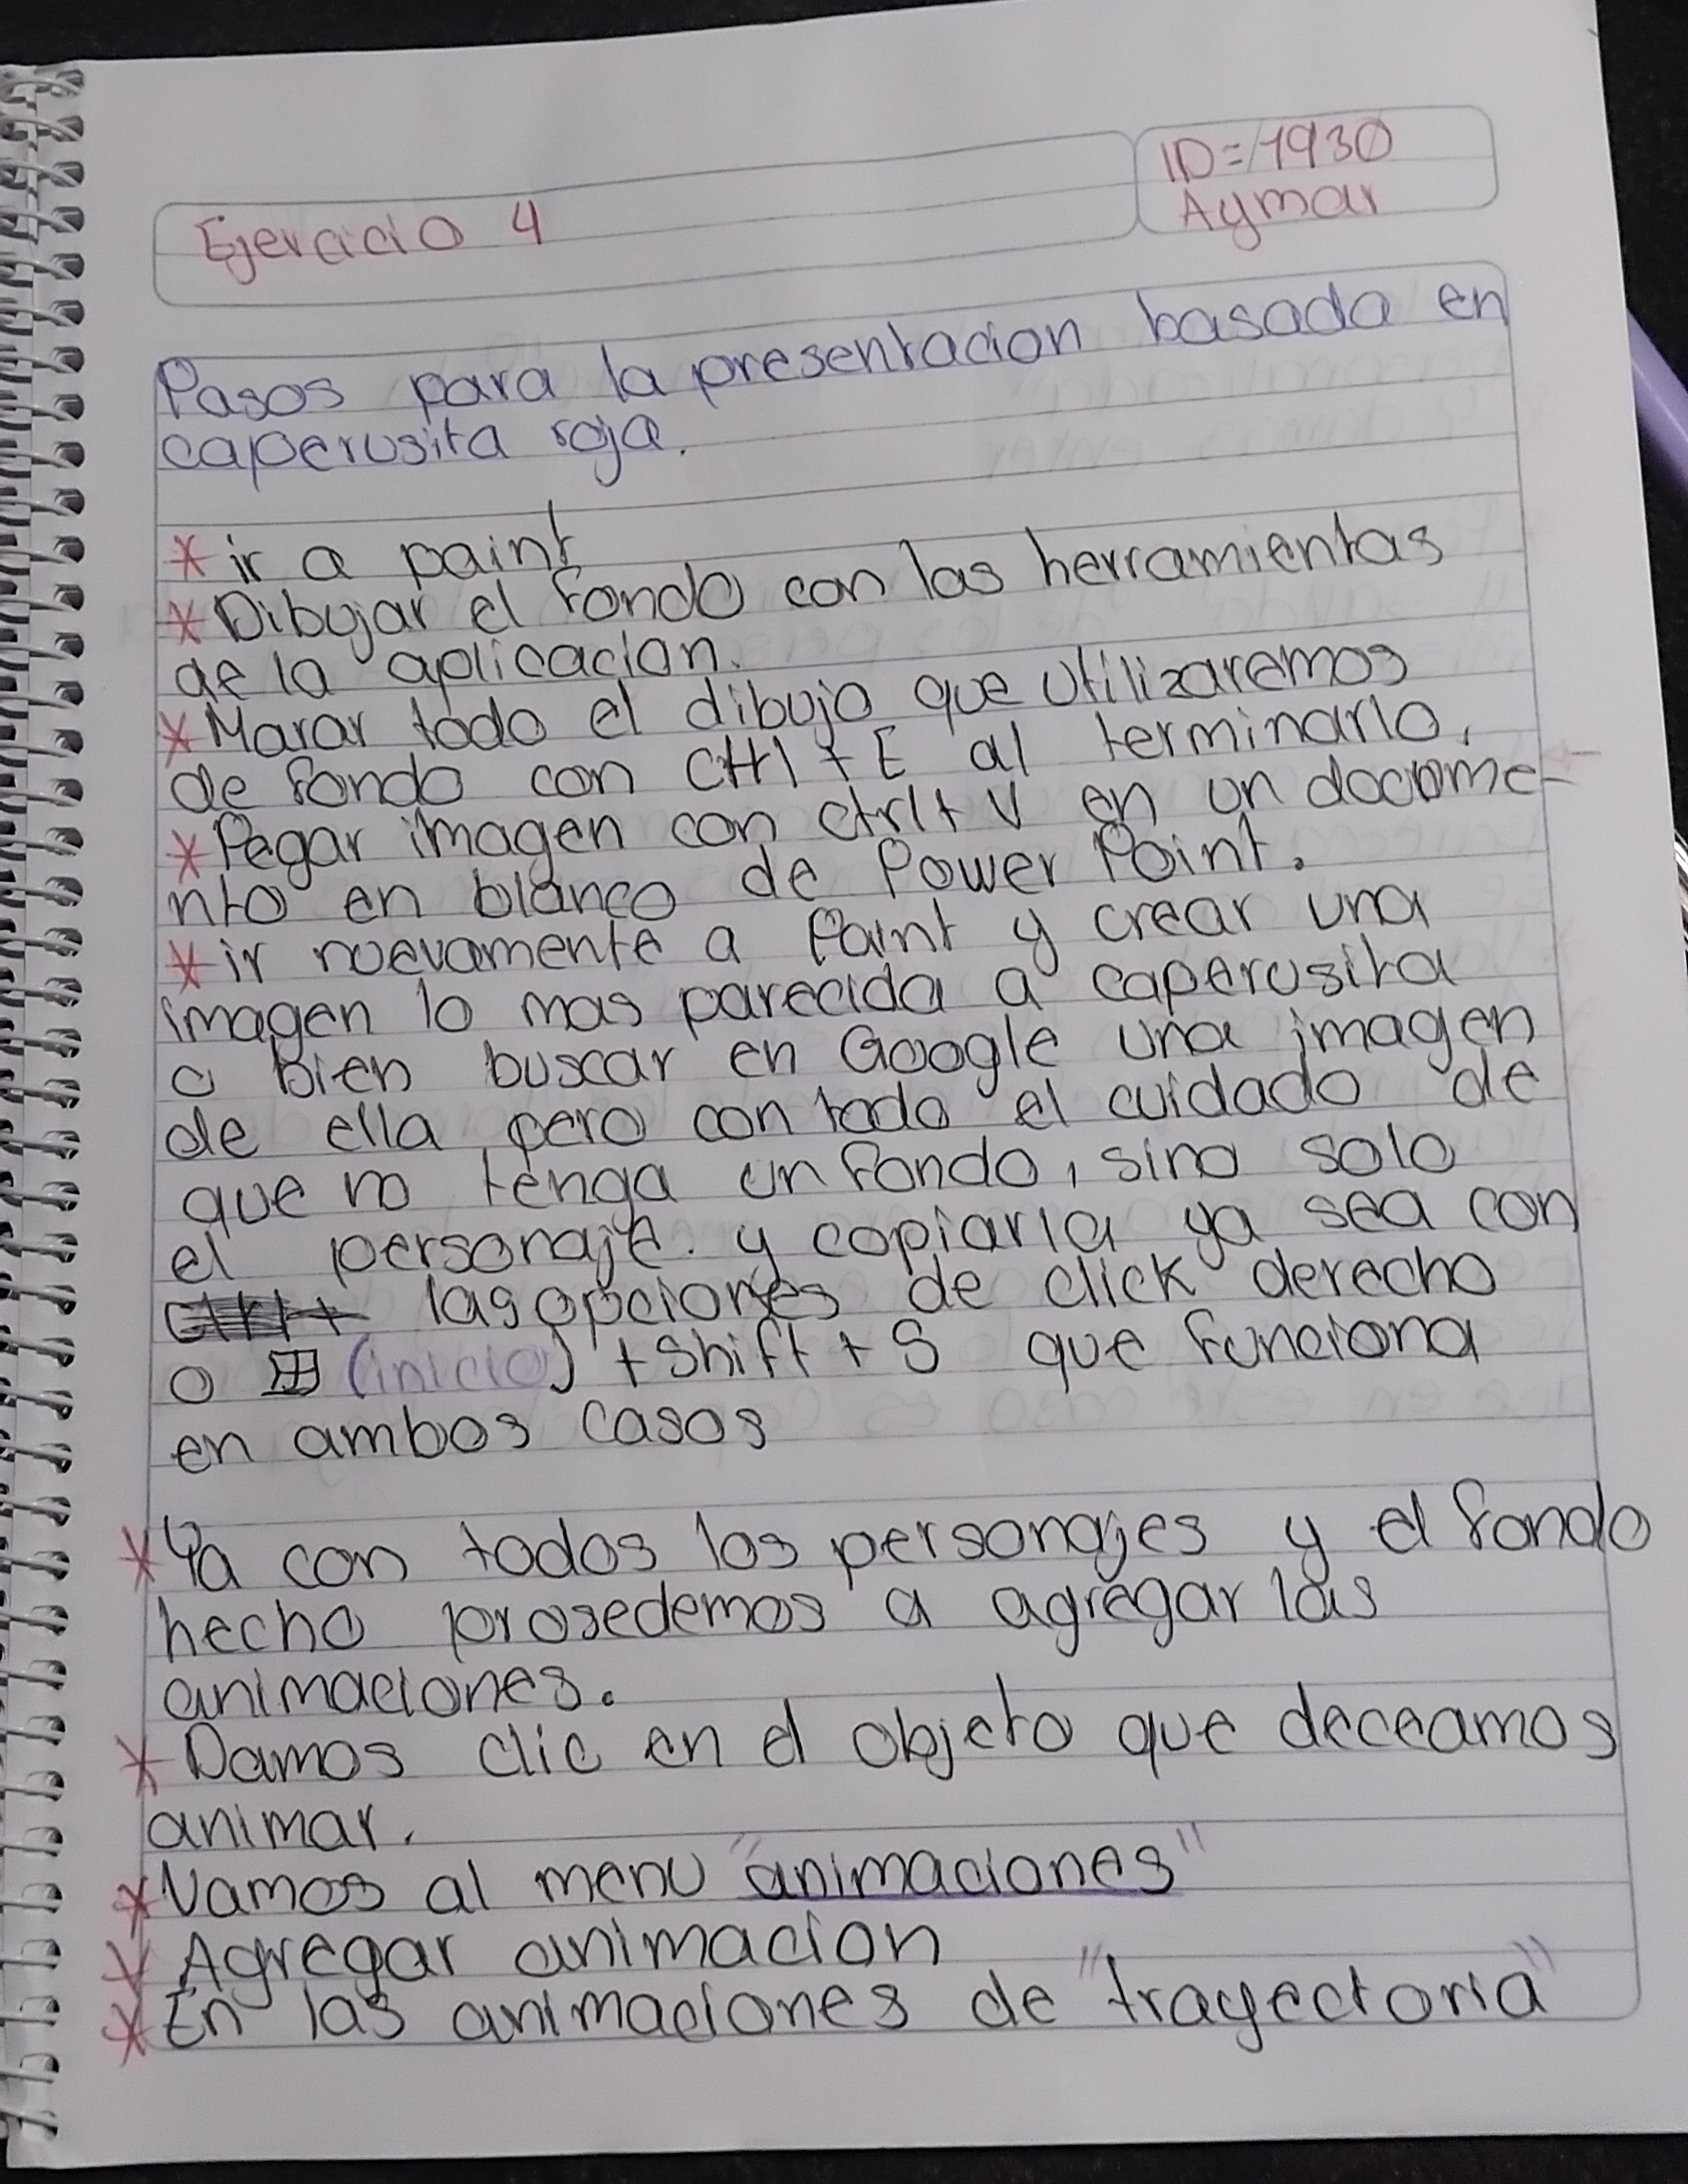 Ejercicio 4
ID=1930
Aymar
Pasos para la presentacion basada en
caperusita roja.
* ir a paint
* Dibujar el fondo con las herramientas
de la aplicacion.
* Marar todo el dibujo que utilizaremos
de fondo con Ctrl + E al terminarlo.
* Pegar imagen con ctrl+ V en un docume-
nto en blanco de Power Point.
* ir nuevamente a Paint y crear una
imagen lo mas parecida a caperusita
o bien buscar en Google una imagen
de ella pero con todo el cuidado de
que no tenga un fondo, sino solo
el personaje. y copiarla ya sea con
las opciones de click derecho
o (inicio) + Shift + S que funciona
en ambos casos
* Ya con todos los personajes y el fondo
hecho prosedemos a agregar las
animaciones.
* Damos clic en el objeto que deceamos
animar.
* Vamos al menu "animaciones"
* Agregar animacion
* En las animaciones de "trayectoria"